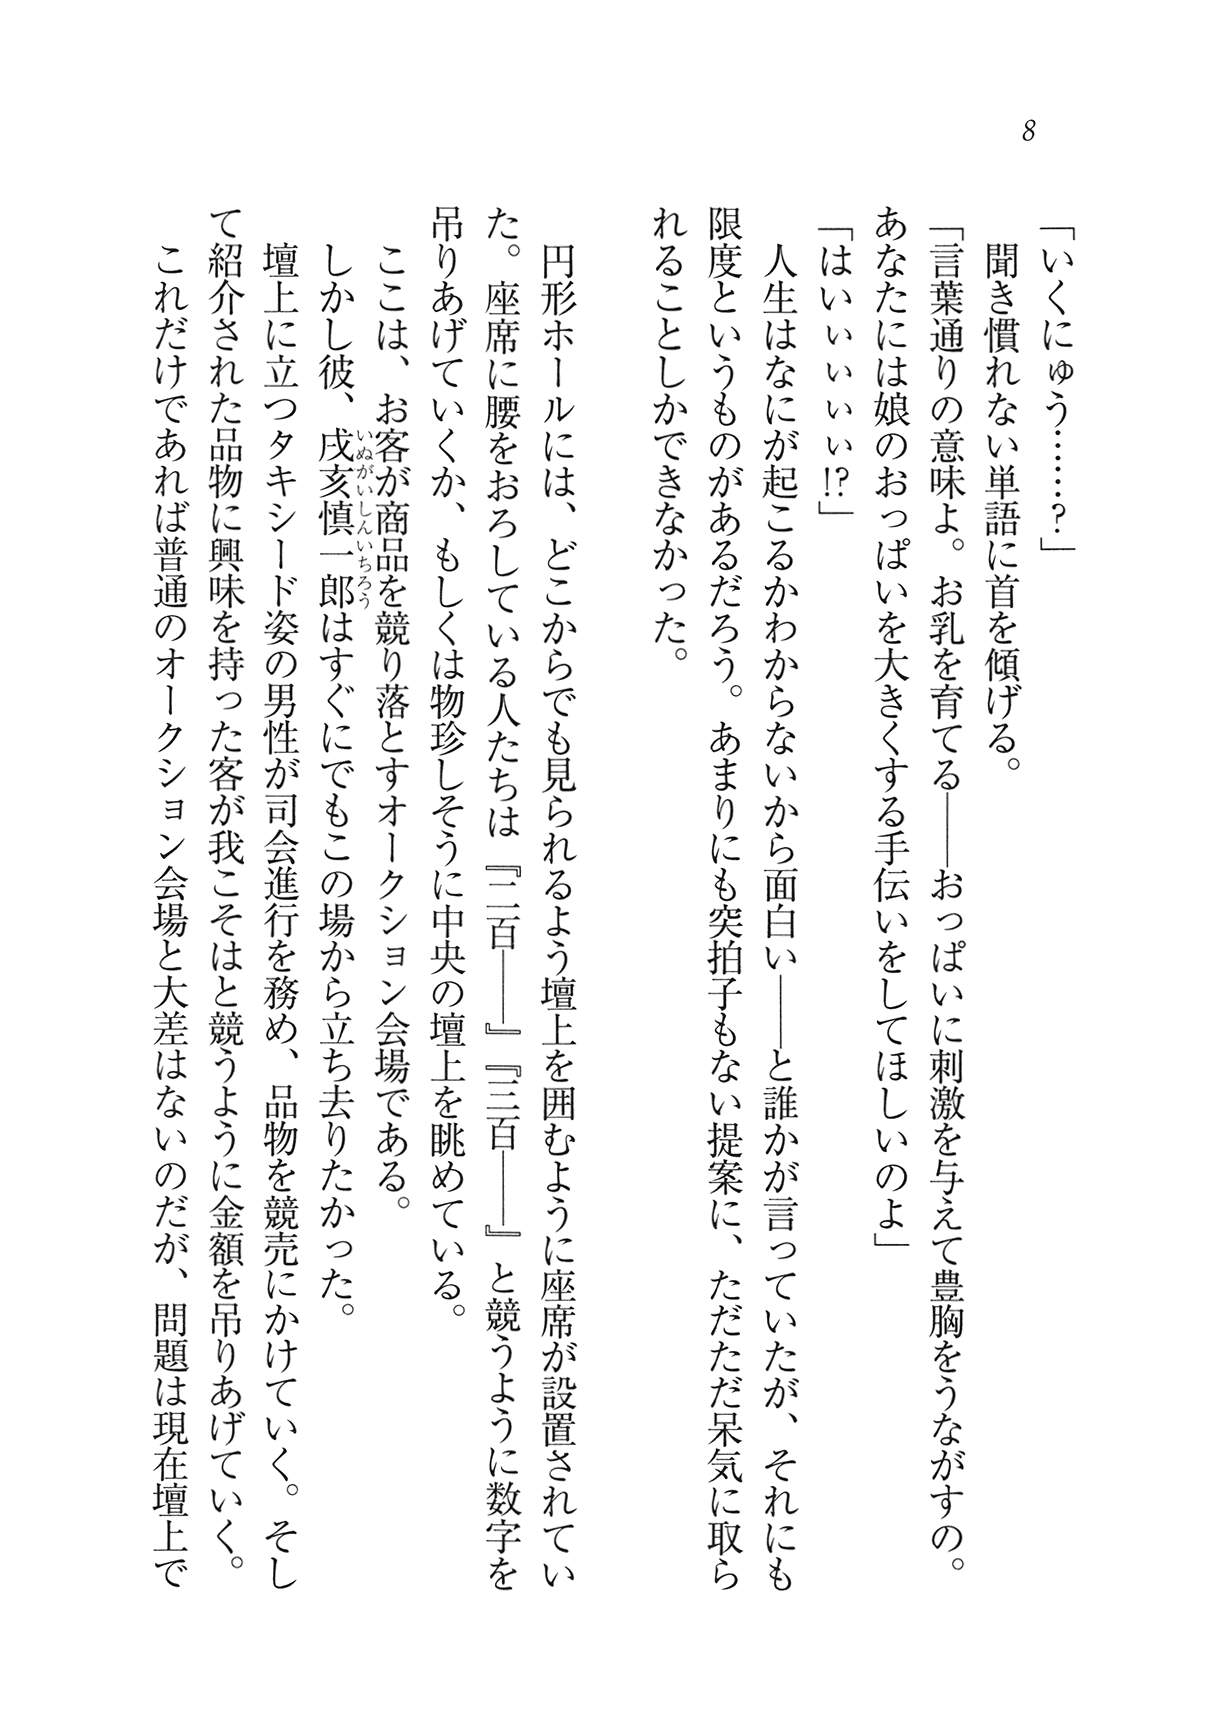 8
「いくにゅう……？」
聞き慣れない単語に首を傾げる。
「言葉通りの意味よ。お乳を育てる――おっぱいに刺激を与えて豊胸をうながすの。
あなたには娘のおっぱいを大きくする手伝いをしてほしいのよ」
「はいぃぃぃぃ!?」
人生はなにが起こるかわからないから面白い――と誰かが言っていたが、それにも
限度というものがあるだろう。あまりにも突拍子もない提案に、ただただ呆気に取ら
れることしかできなかった。
円形ホールには、どこからでも見られるよう壇上を囲むように座席が設置されてい
た。座席に腰をおろしている人たちは『二百――』『三百――』と競うように数字を
吊りあげていくか、もしくは物珍しそうに中央の壇上を眺めている。
ここは、お客が商品を競り落とすオークション会場である。
しかし彼、戌亥慎一郎はすぐにでもこの場から立ち去りたかった。
いぬがいしんいちろう
壇上に立つタキシード姿の男性が司会進行を務め、品物を競売にかけていく。そし
て紹介された品物に興味を持った客が我こそはと競うように金額を吊りあげていく。
これだけであれば普通のオークション会場と大差はないのだが、問題は現在壇上で